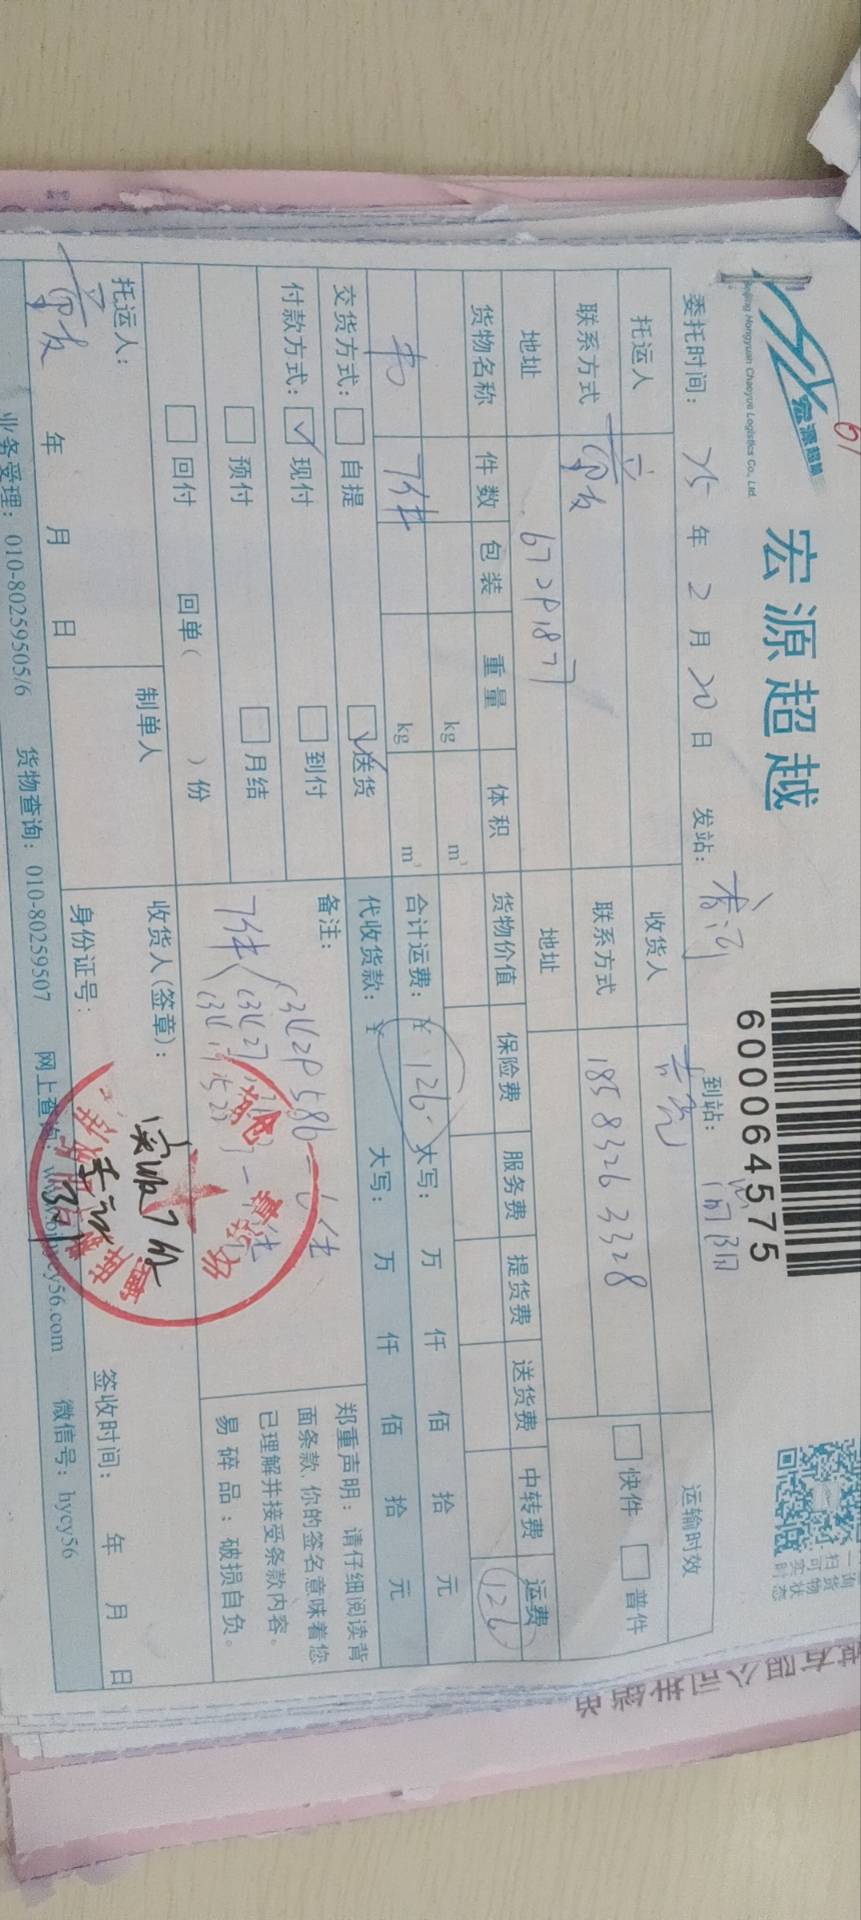 宏源超越
宏源超越
Beijing Hongyuan Chaoyue Logistics Co., Ltd.
6000064575
委托时间: 25 年 2 月 20 日 发站: 香河 到站:
托运人 收货人 运输时效
联系方式 联系方式 185 8326 3328 快件 普件
地址 672P1877 地址
货物名称 件数 包装 重量 体积 货物价值 保险费 服务费 提货费 送货费 中转费 运费
kg m³ 126
书 7件 kg m³ 合计运费: ¥ 126. 大写: 万 仟 佰 拾 元
交货方式: 自提 送货 代收货款: ¥ 大写: 万 仟 佰 拾 元
付款方式: 现付 到付
预付 月结
回付 回单( )份
备注:
7件
郑重声明: 请仔细阅读背
面条款, 你的签名意味着您
已理解并接受条款内容。
易碎品: 破损自负。
托运人: 年 月 日
制单人
收货人(签章):
实收7件
身份证号:
签收时间: 年 月 日
业务受理: 010-80259505/6 货物查询: 010-80259507 网上查询: hycy56.com 微信号: hycy56